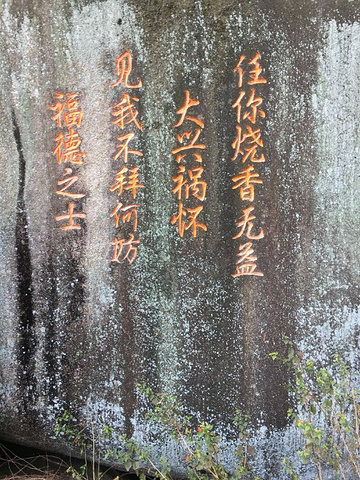 任你烧香无益
大兴祸怀
见我不拜何妨
福德之士